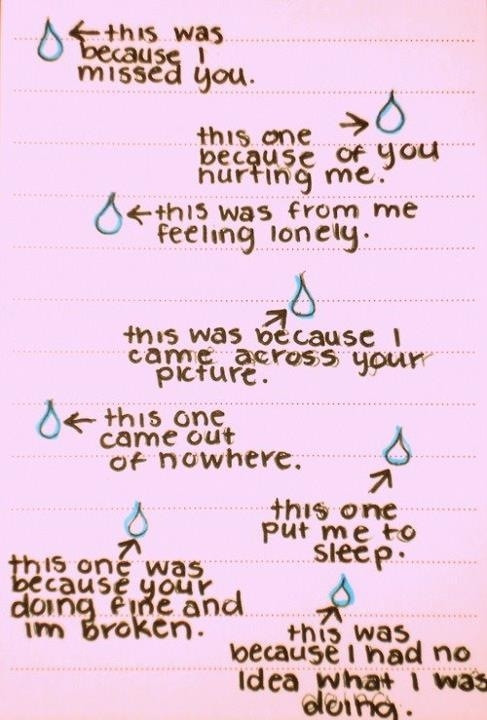 this was
because I
missed you.
this one
because of you
hurting me.
this was from me
feeling lonely.
this was because I
came across your
picture.
this one
came out
of nowhere.
this one
put me to
sleep.
this one was
because your
doing fine and
im broken.
this was
because I had no
idea what I was
doing.